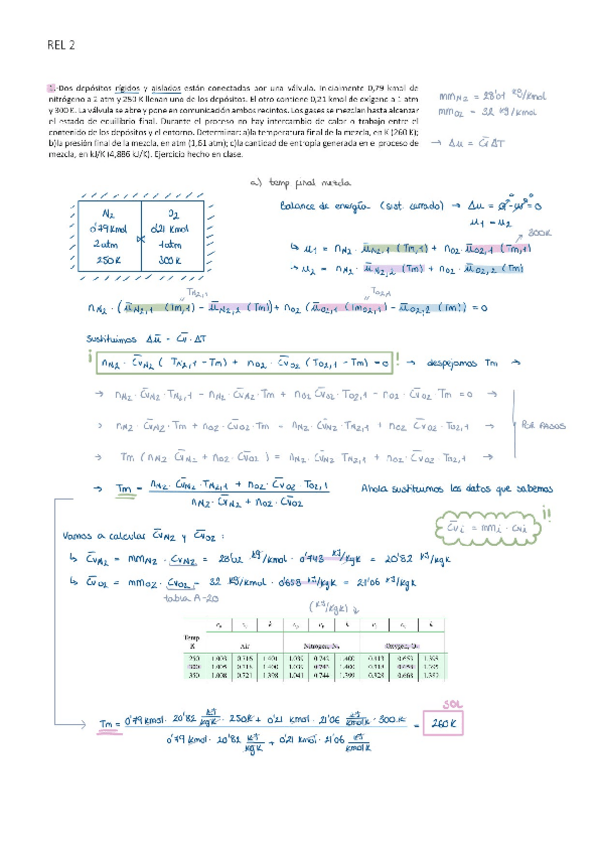 REL 2
1. Dos depósitos rígidos y aislados están conectados por una válvula. Inicialmente 0,79 kmol de
nitrógeno a 2 atm y 250 K llenan uno de los depósitos. El otro contiene 0,21 kmol de oxígeno a 1 atm
y 300 K. La válvula se abre y pone en comunicación ambos recintos. Los gases se mezclan hasta alcanzar
el estado de equilibrio final. Durante el proceso no hay intercambio de calor o trabajo entre el
contenido de los depósitos y el entorno. Determinar: a)la temperatura final de la mezcla, en K (260 K);
b)la presión final de la mezcla, en atm (1,61 atm); c)la cantidad de entropía generada en el proceso de
mezcla, en kJ/K (4,886 kJ/K). Ejercicio hecho en clase.
mm N2 = 28'01 kg/kmol
mm O2 = 32 kg/kmol
→ Δu = C̄v ΔT
a) temp final mezcla
N2
0'79 kmol
2 atm
250 K
O2
0'21 kmol
1 atm
300 K
Balance de energía (sist. cerrado) → Δu = Q - W = 0
u1 = u2
300K
↳ u1 = nN2 · ūN2,1 (Tm,1) + nO2 · ūO2,1 (Tm,1)
→ u2 = nN2 · ūN2,2 (Tm) + nO2 · ūO2,2 (Tm)
TN2,1
TO2,1
nN2 · (ūN2,1 (Tm,1) - ūN2,2 (Tm)) + nO2 (ūO2,1 (TmO2,1) - ūO2,2 (Tm)) = 0
Sustituimos Δū = C̄v · ΔT
¡ nN2 · C̄vN2 (TN2,1 - Tm) + nO2 · C̄vO2 (TO2,1 - Tm) = 0 ! → despejamos Tm →
→ nN2 · C̄vN2 · TN2,1 - nN2 · C̄vN2 · Tm + nO2 C̄vO2 · TO2,1 - nO2 · C̄vO2 Tm = 0 →
→ nN2 · C̄vN2 · Tm + nO2 · C̄vO2 · Tm = nN2 · C̄vN2 · TN2,1 + nO2 C̄vO2 · TO2,1 →
POR PASOS
→ Tm (nN2 C̄vN2 + nO2 · C̄vO2) = nN2 · C̄vN2 TN2,1 + nO2 · C̄vO2 · TO2,1 →
→ Tm = nN2 · C̄vN2 · TN2,1 + nO2 · C̄vO2 · TO2,1
nN2 · C̄vN2 + nO2 · C̄vO2
Ahora sustituimos los datos que sabemos
C̄vi = mmi · cvi ¡!
Vamos a calcular C̄vN2 y C̄vO2 :
↳ C̄vN2 = mmN2 · CvN2 = 28'02 kg/kmol · 0'743 kJ/kgK = 20'82 kJ/kgK
↳ C̄vO2 = mmO2 · CvO2 = 32 kg/kmol · 0'658 kJ/kgK = 21'06 kJ/kgK
tabla A-20
(kJ/kgK) ↓
cp cv k cp cv k cp cv k
Temp
K Air Nitrogen, N2 Oxygen, O2
250 1.003 0.716 1.401 1.039 0.742 1.400 0.913 0.653 1.398
300 1.005 0.718 1.400 1.039 0.743 1.400 0.918 0.658 1.395
350 1.008 0.721 1.398 1.041 0.744 1.399 0.928 0.668 1.389
SOL
Tm = 0'79 kmol · 20'82 kJ/kgK · 250K + 0'21 kmol · 21'06 kJ/kmolK · 300K = 260K
0'79 kmol · 20'82 kJ/kgK + 0'21 kmol · 21'06 kJ/kmolK